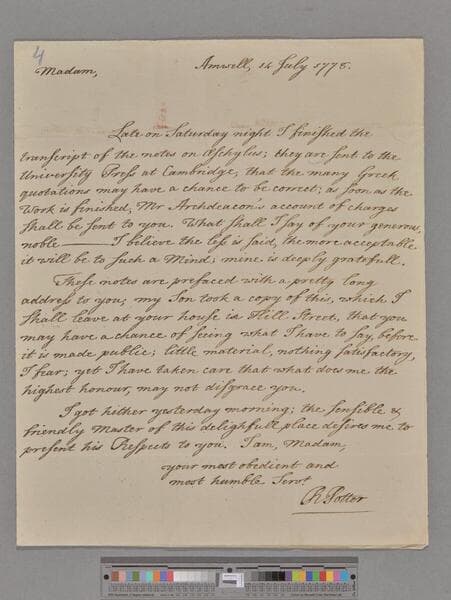 4
Amwell, 14 July 1778.
Madam,
Late on Saturday night I finished the
transcript of the notes on Æschylus; they are sent to the
University Press at Cambridge, that the many Greek
quotations may have a chance to be correct; as soon as the
Work is finished, Mr Archdeacon's account of charges
shall be sent to you. What shall I say of your generous,
noble ——— I believe the less is said, the more acceptable
it will be to such a Mind; mine is deeply gratefull.
These notes are prefaced with a pretty long
address to you; my Son took a copy of this, which I
shall leave at your house in Hill Street, that you
may have a chance of seeing what I have to say, before
it is made public; little material, nothing satisfactory,
I fear; yet I have taken care that what does me the
highest honour, may not disgrace you.
I got hither yesterday morning; the sensible &
friendly Master of this delightfull place desires me to
present his Respects to you. I am, Madam,
your most obedient and
most humble Servt
R Potter